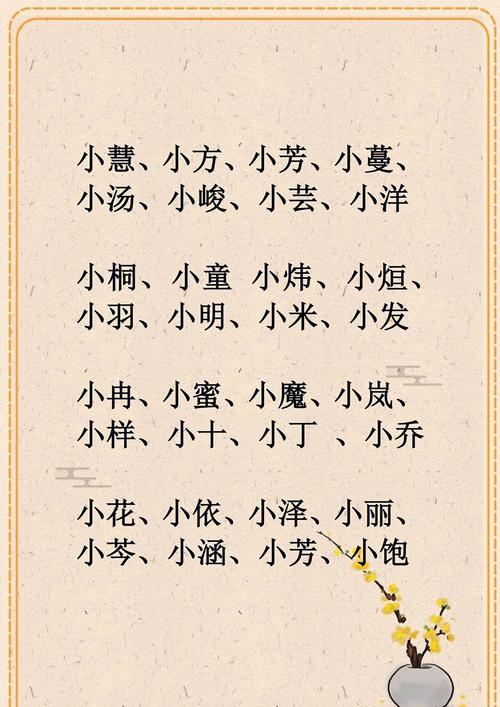 小慧、小方、小芳、小蔓、
小汤、小峻、小芸、小洋
小桐、小童 小炜、小烜、
小羽、小明、小米、小发
小冉、小蜜、小魔、小岚、
小样、小十、小丁 、小乔
小花、小依、小泽、小丽、
小芩、小涵、小芳、小饱